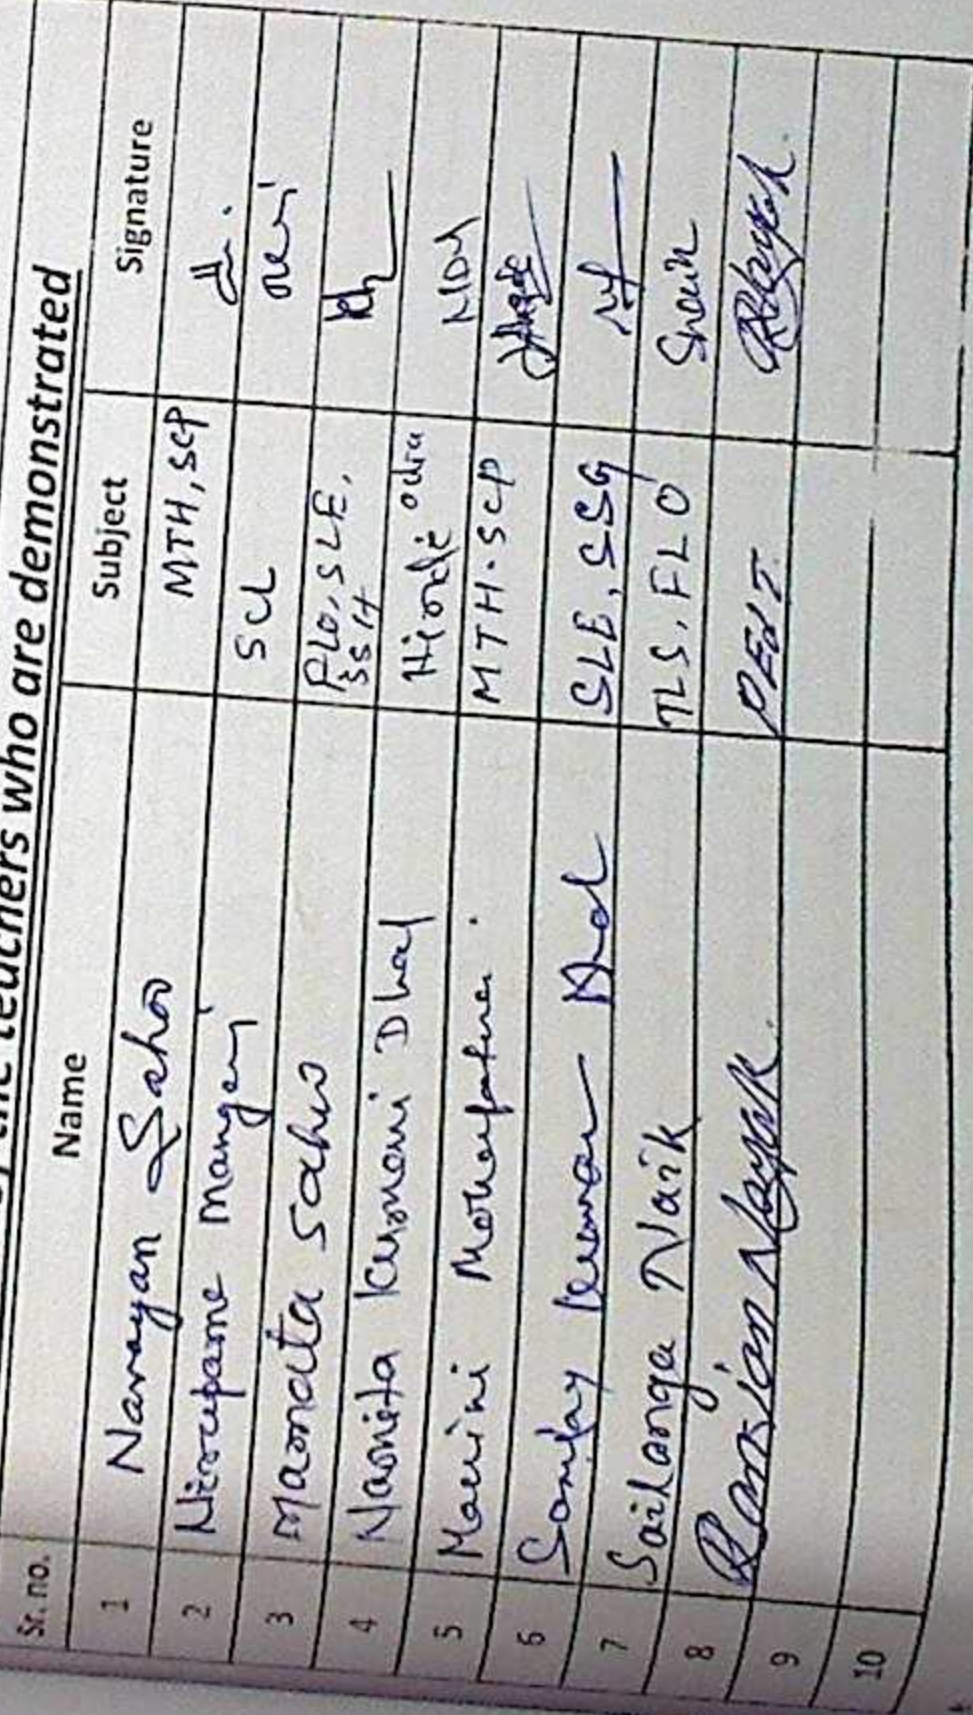 the teachers who are demonstrated
Sr. no. Name Subject Signature
1 Narayan Sahoo MTH, SCP
2 Nirupama Mangaj SCL
3 Mamata Sahu PLO, SLE, SSH
4 Namita Kumari Dhal Hindi Odia NDH
5 Mohapatra MTH.SCP
6 Sanjay Kumar SLE, SSG
7 Sailanga Naik TLS, FLO Snaik
8 Ranjan Nayak PEHT
9
10